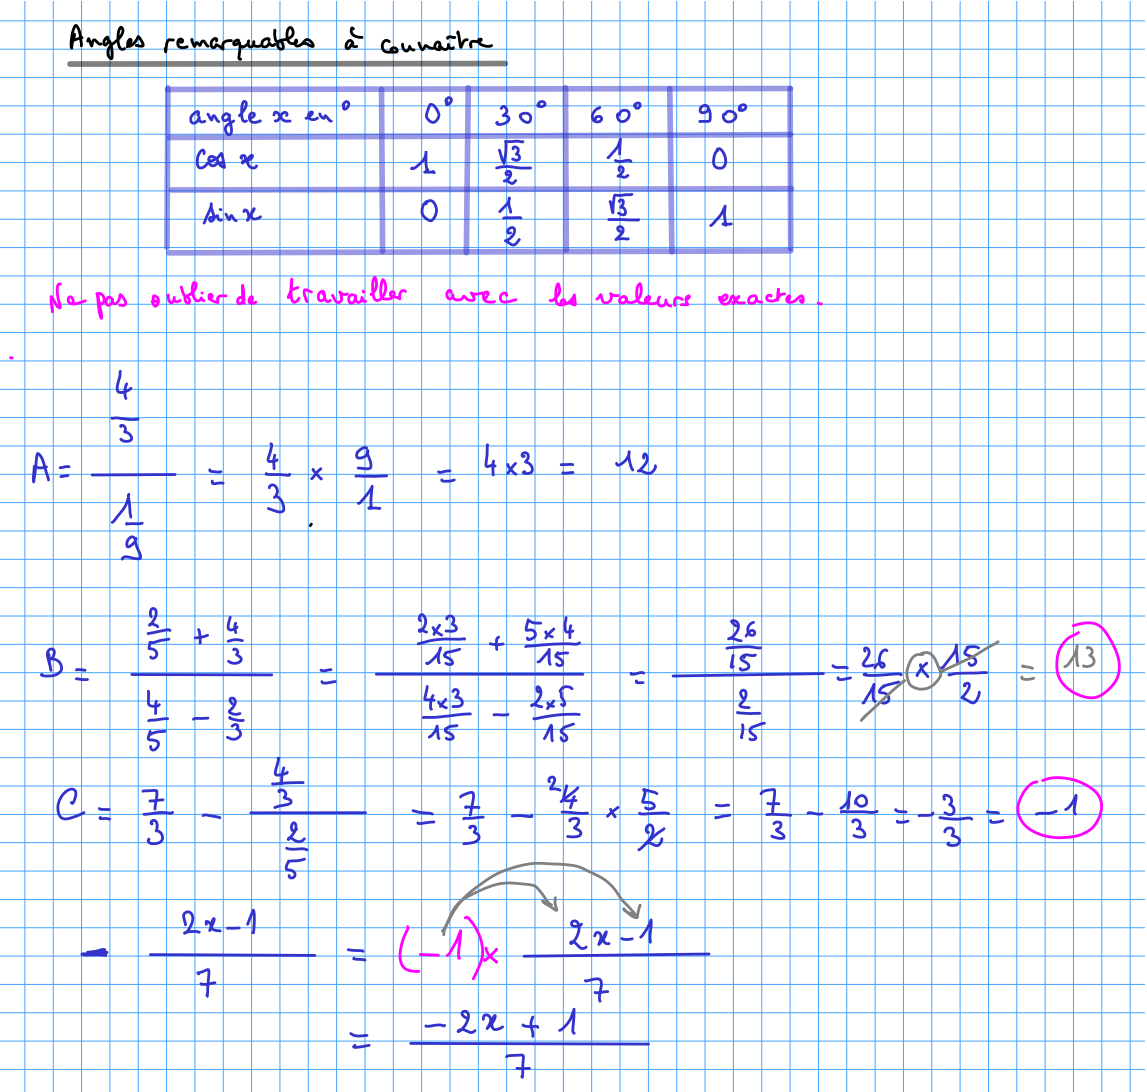 Angles remarquables à connaître
angle x en ° 0° 30° 60° 90°
cos x 1 √3/2 1/2 0
sin x 0 1/2 √3/2 1
Ne pas oublier de travailler avec les valeurs exactes.
A = (4/3)/(1/9) = 4/3 × 9/1 = 4×3 = 12
B = (2/5 + 4/3)/(4/5 − 2/3) = (2×3/15 + 5×4/15)/(4×3/15 − 2×5/15) = (26/15)/(2/15) = 26/15 × 15/2 = 13
C = 7/3 − (4/3)/(2/5) = 7/3 − ²4/3 × 5/2 = 7/3 − 10/3 = −3/3 = −1
− (2x−1)/7 = (−1) × (2x−1)/7
= (−2x + 1)/7